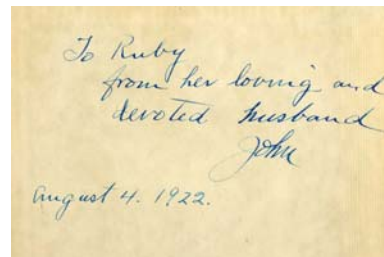 To Ruby
from her loving and
devoted husband
John
August 4. 1922.